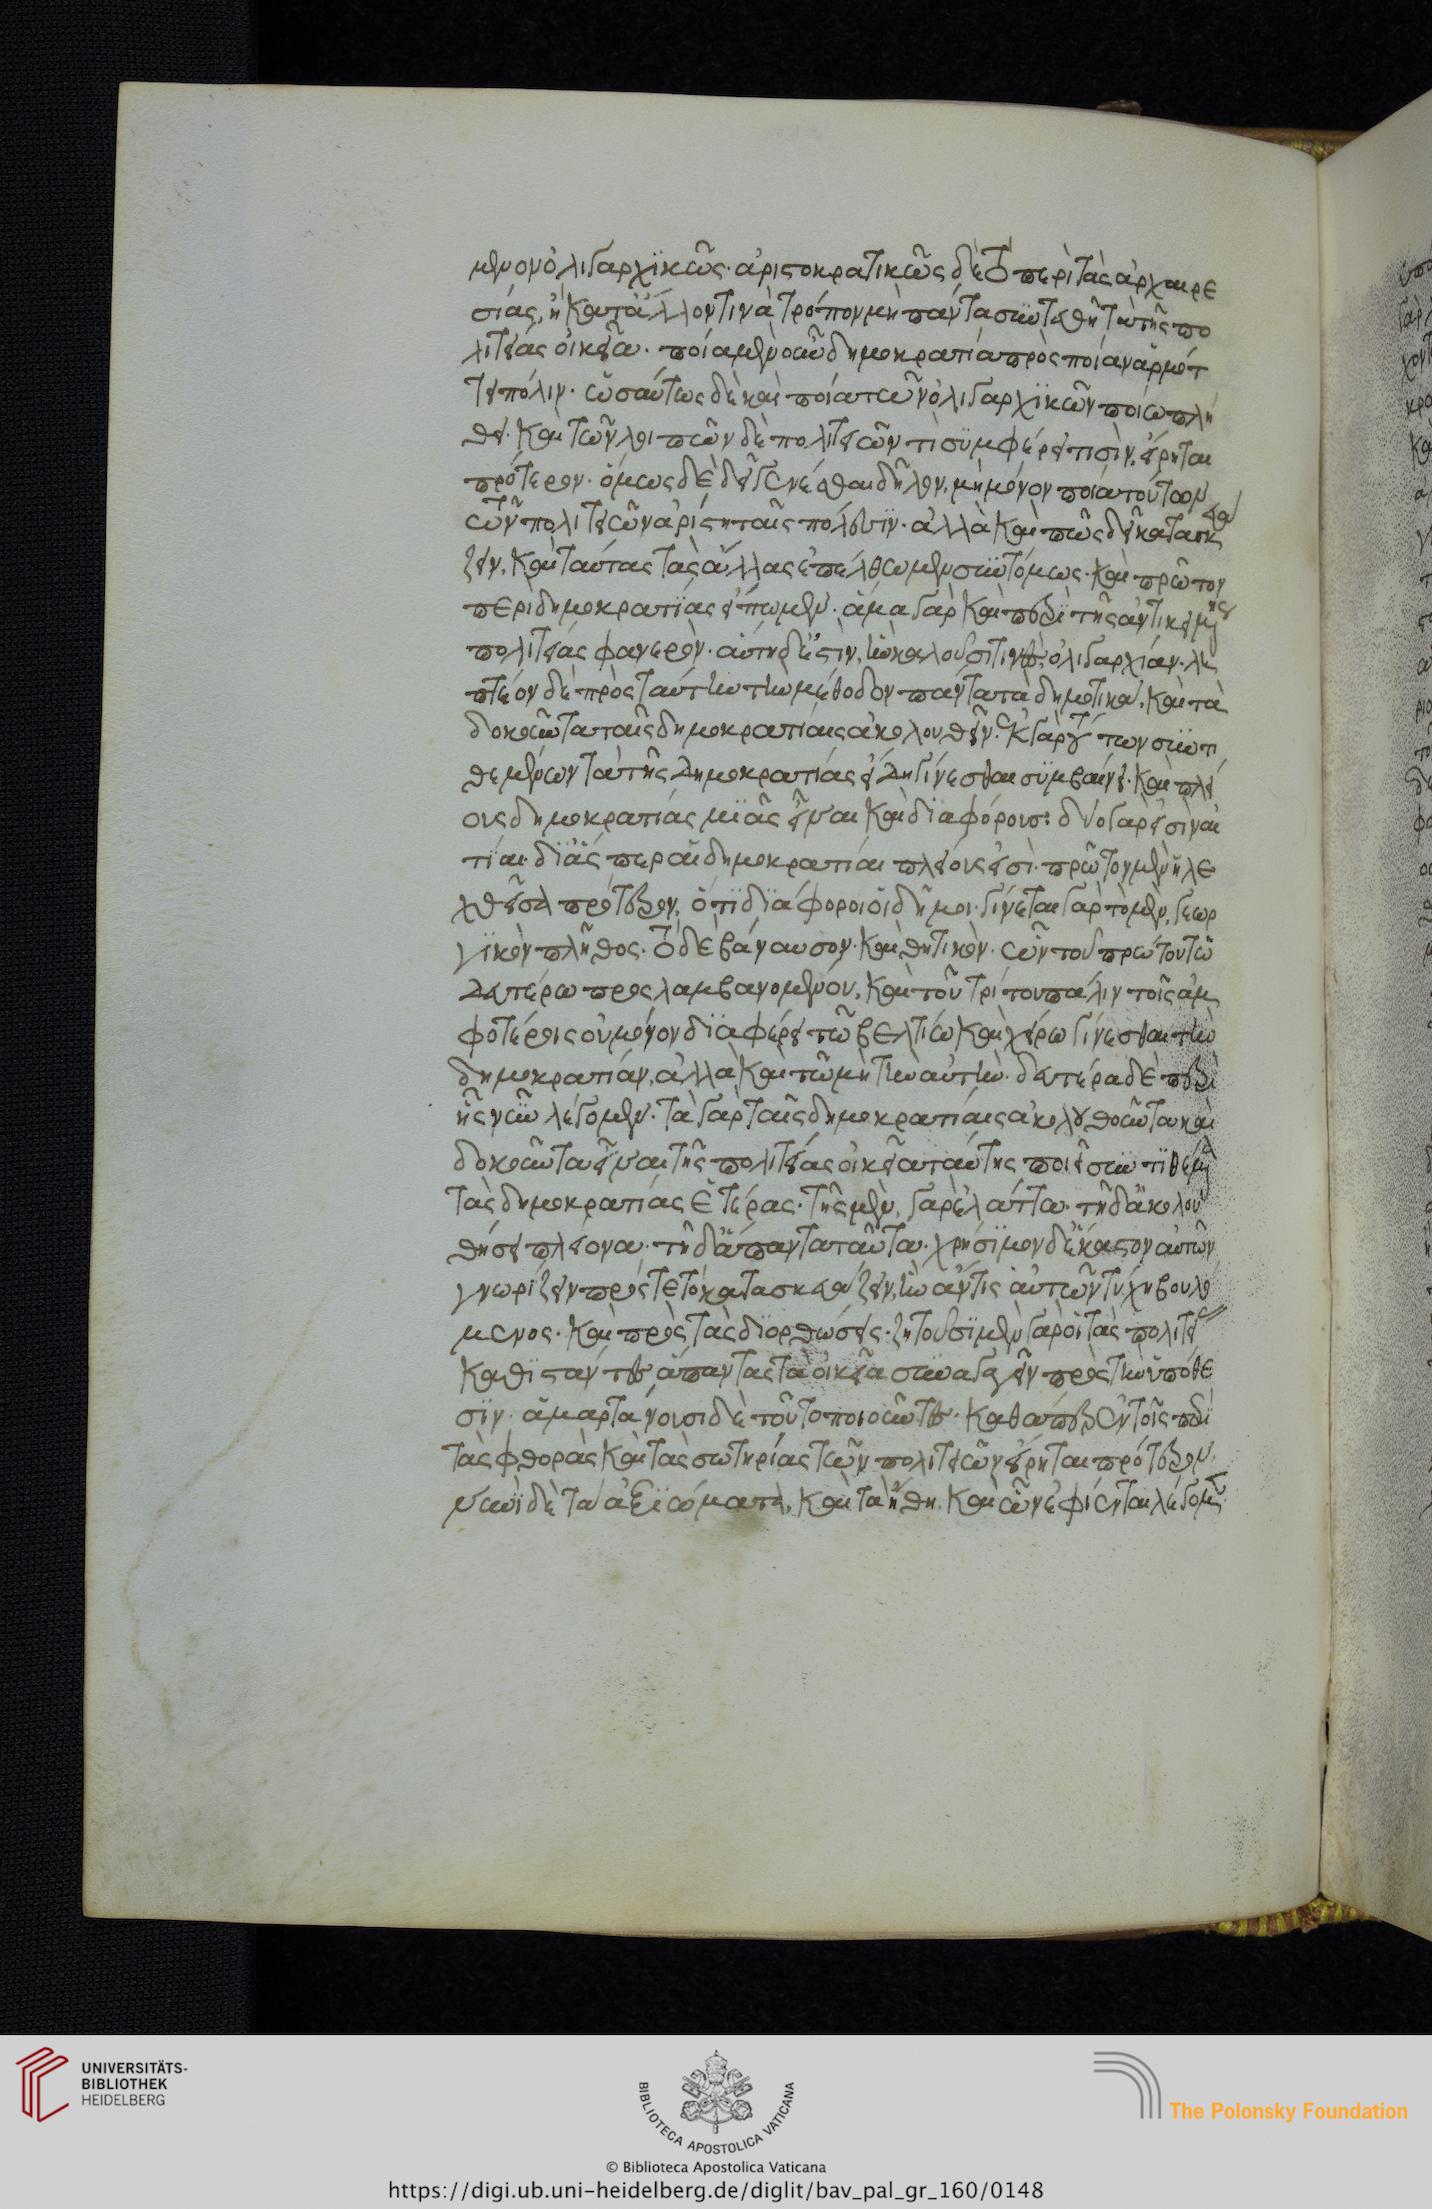 μενον ὀλιγαρχϊκῶς· ἀριστοκρατικῶς δὲ τὸ περὶ τὰς ἀρχαιρε
σίας, ἢ κατ' ἄλλον τινὰ τρόπον μὴ πάντα συντεθῆ τὰ τῆς πο
λιτείας οἰκεῖα· ποία μὲν οὖν δημοκρατία πρὸς ποίαν ἁρμότ
τει πόλιν· ὡσαύτως δὲ καὶ ποία τῶν ὀλιγαρχϊκῶν ποίω πλή
θει· καὶ τῶν λοιπῶν δὲ πολιτειῶν τὶ συμφέρει τισὶν, εἴρηται
πρότερον· ὅμως δὲ δεῖ γενέσθαι δῆλον, μὴ μόνον ποία τούτων
τῶν πολιτειῶν ἀρίστη ταῖς πόλεσιν· ἀλλὰ καὶ πῶς δεῖ κατασκευά
ζειν, καὶ ταύτας τὰς ἄλλας ἐπέλθωμεν συντόμως· καὶ πρῶτον
περὶ δημοκρατίας εἴπωμεν· ἅμα γὰρ καὶ περὶ τῆς ἀντικειμένης
πολιτείας φανερὸν· αὕτη δ' ἐστὶν, ἣν καλοῦσί τινες ὀλιγαρχίαν· λη
πτέον δὲ πρὸς ταύτην τὴν μέθοδον πάντα τὰ δημοτικὰ, καὶ τὰ
δοκοῦντα ταῖς δημοκρατίαις ἀκολουθεῖν· ἐκ γὰρ τούτων συντι
θεμένων τὰ τῆς δημοκρατίας εἴδη γίνεσθαι συμβαίνει· καὶ πλεί
ους δημοκρατίας μιᾶς εἶναι καὶ διαφόρους: δύο γάρ εἰσιν αἰ
τίαι δι' ἅς περ αἱ δημοκρατίαι πλείους εἰσὶ· πρῶτον μὲν ἡ λε
χθεῖσα πρότερον, ὅτι διάφοροι οἱ δῆμοι· γίνεται γὰρ τὸ μὲν, γεωρ
γϊκὸν πλῆθος· τὸ δὲ βάναυσον· καὶ θητικὸν· ὧν τοῦ πρώτου τῶ
δευτέρω προςλαμβανομένου, καὶ τοῦ τρίτου πάλιν τοῖς ἀμ
φοτέροις οὐ μόνον διαφέρει τῶ βελτίω καὶ χείρω γίνεσθαι τὴν
δημοκρατίαν, ἀλλὰ καὶ τῶ μὴ τὴν αὐτὴν· δευτέρα δὲ περὶ
ἧς νῦν λέγομεν· τὰ γὰρ ταῖς δημοκρατίαις ἀκολουθοῦντα καὶ
δοκοῦντα εἶναι τῆς πολιτείας οἰκεῖα ταύτης ποιεῖ συντιθέμενα
τὰς δημοκρατίας ἑτέρας· τῆς μὲν, γὰρ ἐλάττω· τῆ δ' ἀκολου
θήσει πλείονα· τῆ δ' ἅπαντα ταῦτα· χρήσιμον δ' ἕκαστον αὐτῶν
γνωρίζειν πρός τε τὸ κατασκευάζειν, ἣν ἄν τις αὐτῶν τύχη βουλό
μενος· καὶ πρὸς τὰς διορθώσεις· ζητοῦσι μὲν γὰρ οἱ τὰς πολιτείας
καθιστάντες ἅπαντας τὰ οἰκεῖα συναγαγεῖν πρὸς τὴν ὑπόθε
σιν· ἁμαρτάνουσι δὲ τοῦτο ποιοῦντες· καθάπερ ἐν τοῖς περὶ
τὰς φθορὰς καὶ τὰς σωτηρίας τῶν πολιτειῶν εἴρηται πρότερον·
νυνὶ δὲ τὰ ἀξιώματα, καὶ τὰ ἤθη, καὶ ὧν ἐφίενται λέγομεν
UNIVERSITÄTS-
BIBLIOTHEK
HEIDELBERG
BIBLIOTECA APOSTOLICA VATICANA
The Polonsky Foundation
© Biblioteca Apostolica Vaticana
https://digi.ub.uni-heidelberg.de/diglit/bav_pal_gr_160/0148